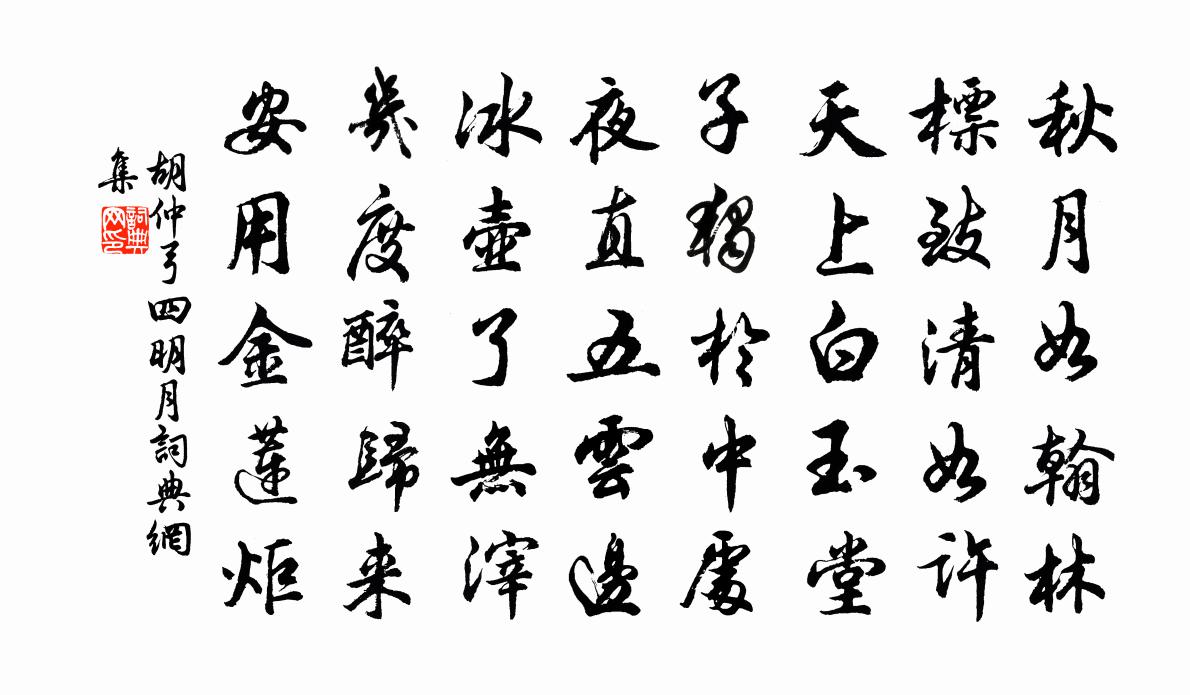 秋月如翰林
標致清如許
天上白玉堂
子獨於中處
夜直五雲邊
冰壺了無滓
幾度醉歸来
安用金蓮炬
胡仲弓四明月詞典網
集
詞典網印